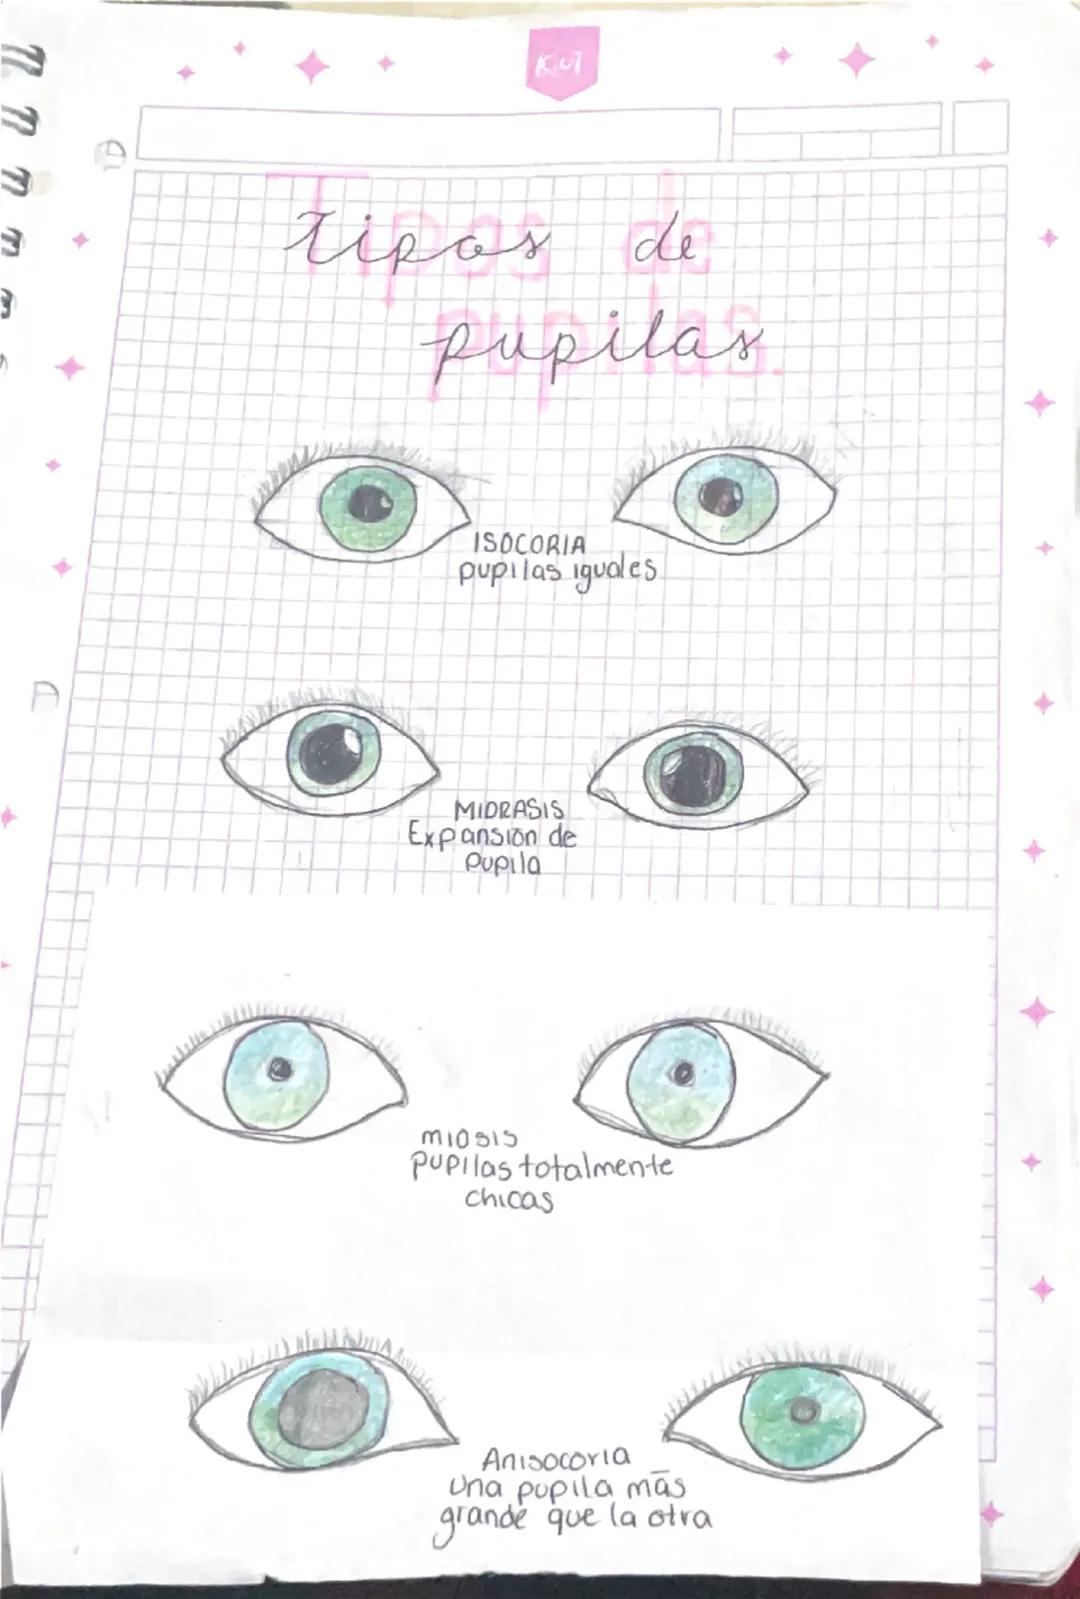 Kut
Tipos de
pupilas.
ISOCORIA
pupilas iguales.
MIDRASIS
Expansión de
pupila
miosis
pupilas totalmente
chicas
Anisocoria
una pupila más
grande que la otra